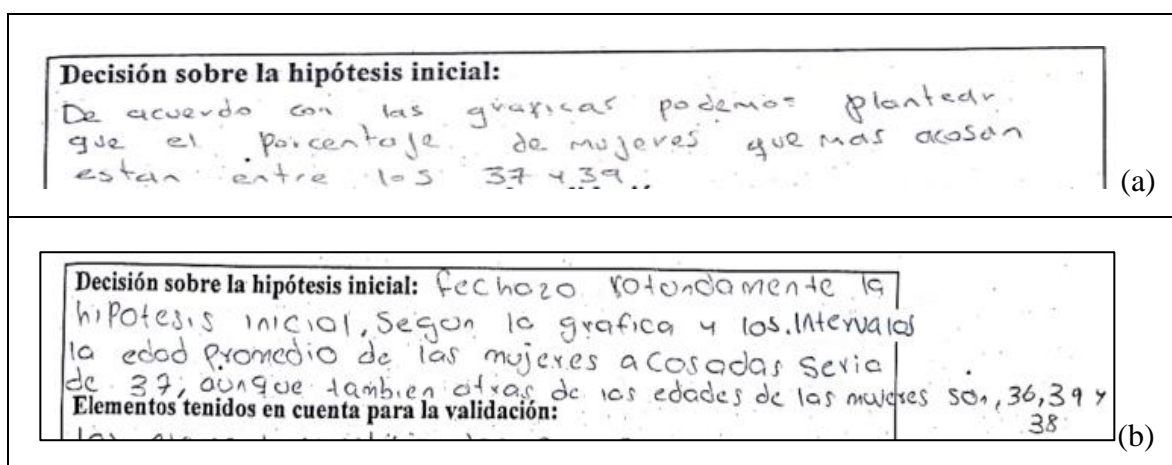 Decisión sobre la hipótesis inicial:
De acuerdo con las graficas podemos plantear
que el porcentaje de mujeres que mas acosan
estan entre los 37 y 39.
(a)
Decisión sobre la hipótesis inicial: rechazo rotundamente la
hipotesis inicial, Segun la grafica y los intervalos
la edad promedio de las mujeres acosadas seria
de 37, aunque tambien otras de las edades de las mujeres son, 36, 39 y
38
Elementos tenidos en cuenta para la validación:
(b)